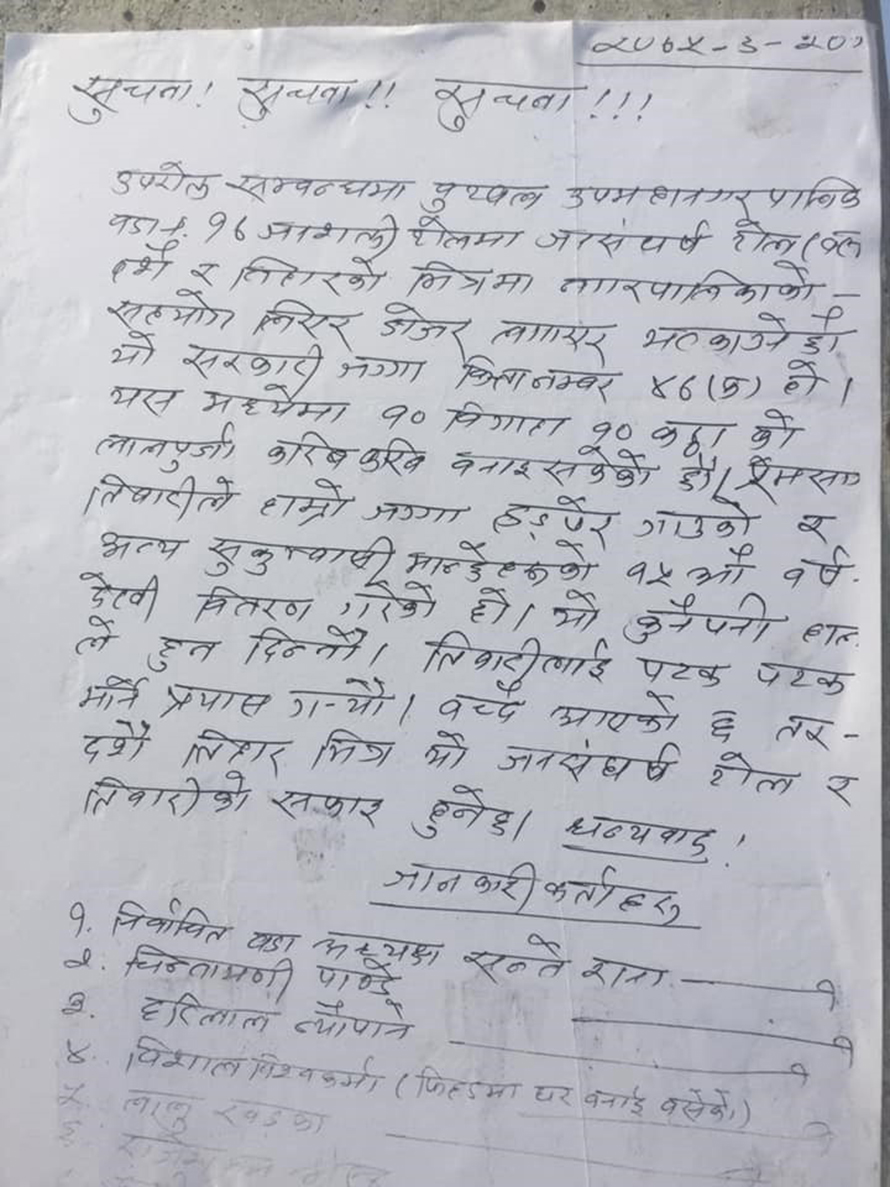 २०७५-६-२०
सुचना! सुचना!! सुचना!!!
उपरोक्त सम्बन्धमा बुटवल उपमहानगर पालिका
वडा नं. १६ जनसंघर्ष टोल
दशै र तिहारको भित्रमा नगरपालिकाको -
सहयोग लिएर डोजर लगाएर भत्काउने छौ
यो सरकारी जग्गा कित्ता नम्बर ४६(क) हो।
यस मध्येमा १० विगाहा १० कठ्ठा को
लालपुर्जा करिब करिब बनाइसकेको छौ।
तिवारीले हाम्रो जग्गा हडपेर गाउको र
अन्य सुकुम्वासी मान्छेहरुको १५ औ वर्ष
देखी वितरण गरेको हो। यो कुनै पनी हाल
ले हुन दिन्नौ। तिवारीलाई पटक पटक
मार्ने प्रयास गर्‍यौ। बच्दै आएको छ तर -
दशै तिहार भित्र यो जनसंघर्ष टोल र
तिवारीको सफाए हुनेछ। धन्यवाद!
जानकारी कर्ताहरु
१. निर्वाचित वडा अध्यक्ष सन्ते राना
२. चिन्तामणी पाण्डे
३. हरिलाल न्यौपाने
४. विशाल विश्वकर्मा (फिल्डमा घर बनाई बसेको)
५. लालु खड्का
६.